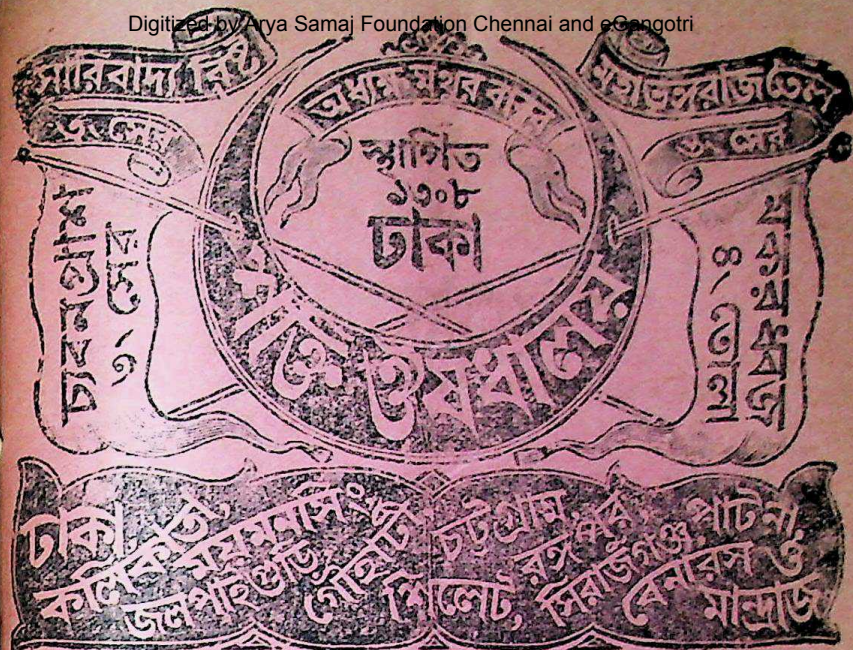 Digitized by Arya Samaj Foundation Chennai and eGangotri
সারিবাদ্য রিষ্ট
৩৲ সের
অধ্যক্ষ মথুর বাবুর
মহাভৃঙ্গরাজ তৈল
৬৲ সের
স্থাপিত
১৩০৮
ঢাকা
চ্যবনপ্রাশ
৩৲ সের
মকরধ্বজ
৪৲ তোলা
শক্তি ঔষধালয়
ঢাকা,
কলিকাতা,
ময়মনসিংহ,
জলপাইগুড়ি,
গৌহাটী
চট্টগ্রাম,
রঙ্গপুর,
শিলেট,
সিরাজগঞ্জ,
পাটনা,
বেনারস ও
মান্দ্রাজ